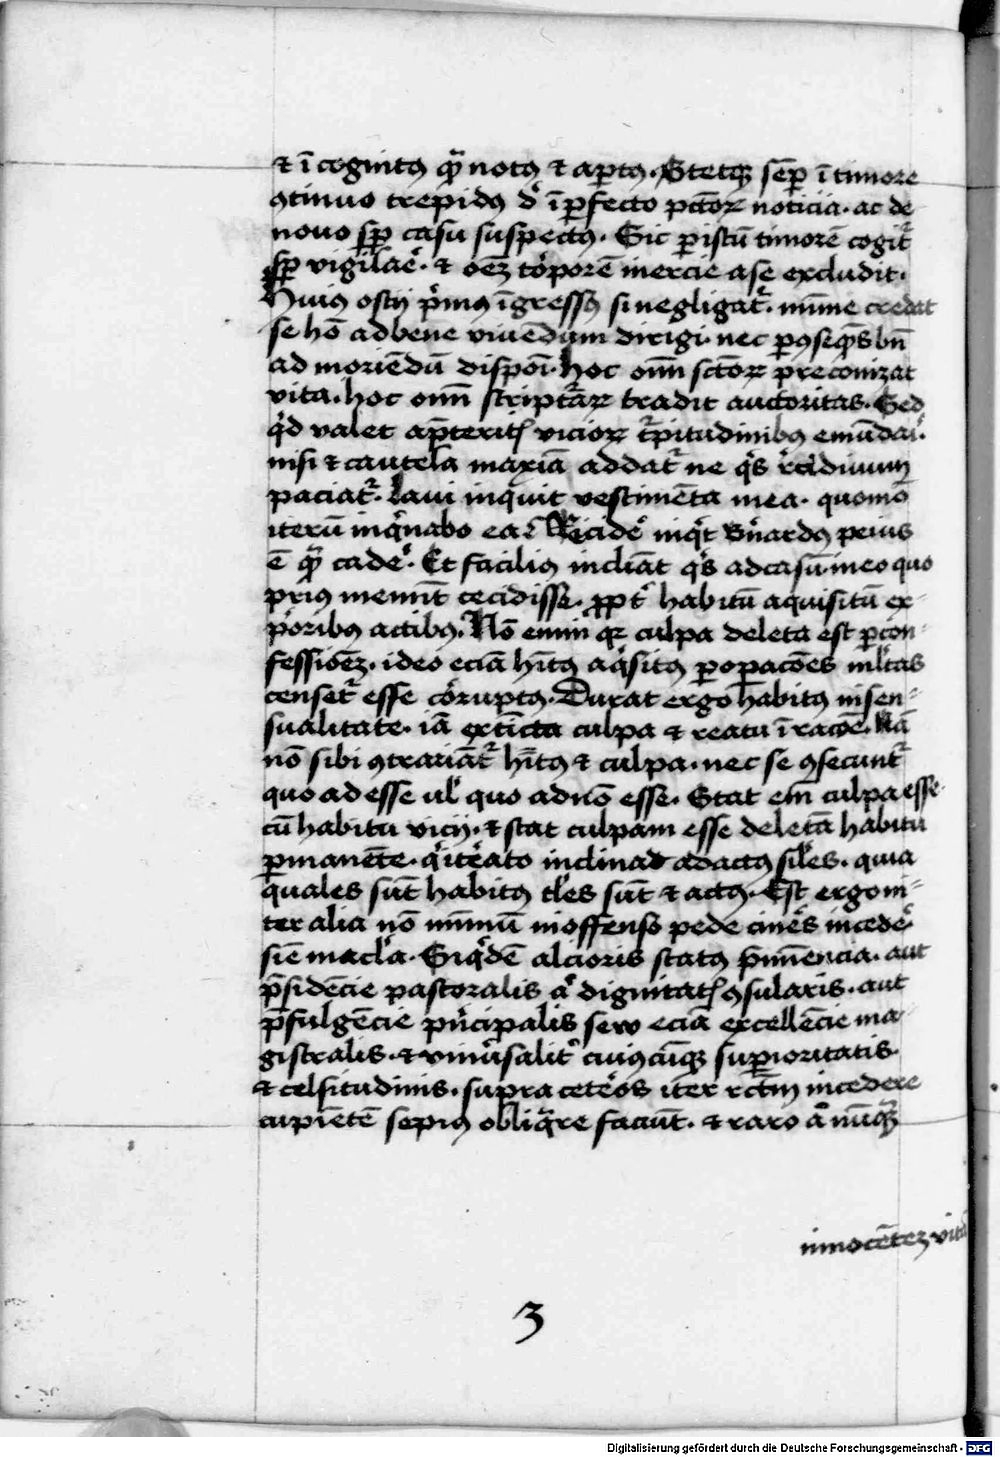 ⁊ ī cognitꝯ qͣ̄ notꝯ ⁊ aꝑtꝯ. Stetqꝫ sēꝑ ī timore
ꝯtinuo trepidꝯ dͤ īꝑfecto pctōꝝ noticia. ac de
nouo sꝑ casu suspectꝯ. Sic ꝑ istū timorē cogitͬ
sꝑ vigilaͤ. ⁊ oēꝫ toͬporē inercie a se excludit.
Huiꝯ ostij pͥmꝯ īgressꝯ si negligatͬ. mīme credat
se hō ad bene viuēdum dirigi. nec ꝑ ꝯseqn̄s bn̄
ad moriēdū dispōi. hoc om̄ sctōꝝ preconizat
vita. hoc om̄ scriptͣaꝝ tradit auctoritas. Sed
qͥd valet apͤteritꝭ vicioꝝ tͬpitudinibꝯ emūdaͥ.
nisi ⁊ cautela maxīa addatͬ ne qͥs rͤcidiuum
paciatͬ. Laui inquit vestimēta mea. quomō
iterū inqͥnabo ea. Recideͤ inqͥt Bͤnardꝯ peius
ē qͣ̄ cadeͤ. Et faciliꝯ incliāt qͥs ad casū. in eo quo
priꝯ meminͥt cecidisse. ꝓptͤ habitū aquisitū ex
pͥoribꝯ actibꝯ. Nō enim qꝛ culpa deleta est ꝑ con-
fessiōeꝫ. ideo eciā hītꝯ aqͥsitꝯ ꝑ oꝑacōes ml̄tas
censetͬ esse coͬruptꝯ. Durat ergo habitꝯ in sen-
sualitate. iā extīcta culpa ⁊ reatu ī racōe. Nā
nō sibi ꝯtrariātͬ hītꝯ ⁊ culpa. nec se ꝯsecuntͬ
quo ad esse ul̄ quo ad nō esse. Stat em̄ culpa esse
cū habitu vicij. ⁊ stat culpam esse deletā habitu
ꝑmanēte. qͥ iteͤato inclinat ad actꝯ sil̄es. quia
quales sūt habitꝯ tl̄es sūt ⁊ actꝯ. Est ergo in-
ter alia nō mīmū inoffenso pede
sīe macl̄a. Siqͥdē alcioris statꝯ pͤminencia. aut
pͤsidēcie pastoralis aͭ dignitatꝭ ꝯsularis. aut
pͤfulgēcie pͥncipalis sew eciā excellēcie ma-
gistralis. ⁊ vniuͤsalitͤ cuiꝯcūqꝫ suꝑioritatis
⁊ celsitudinis. supra ceteͤos iter rctm̄ incedere
cupiētē sepiꝯ obliqͣre faciūt. ⁊ raro aͭ nūqͣ̄
innocēteꝫ vitā
3
Digitalisierung gefördert durch die Deutsche Forschungsgemeinschaft - DFG